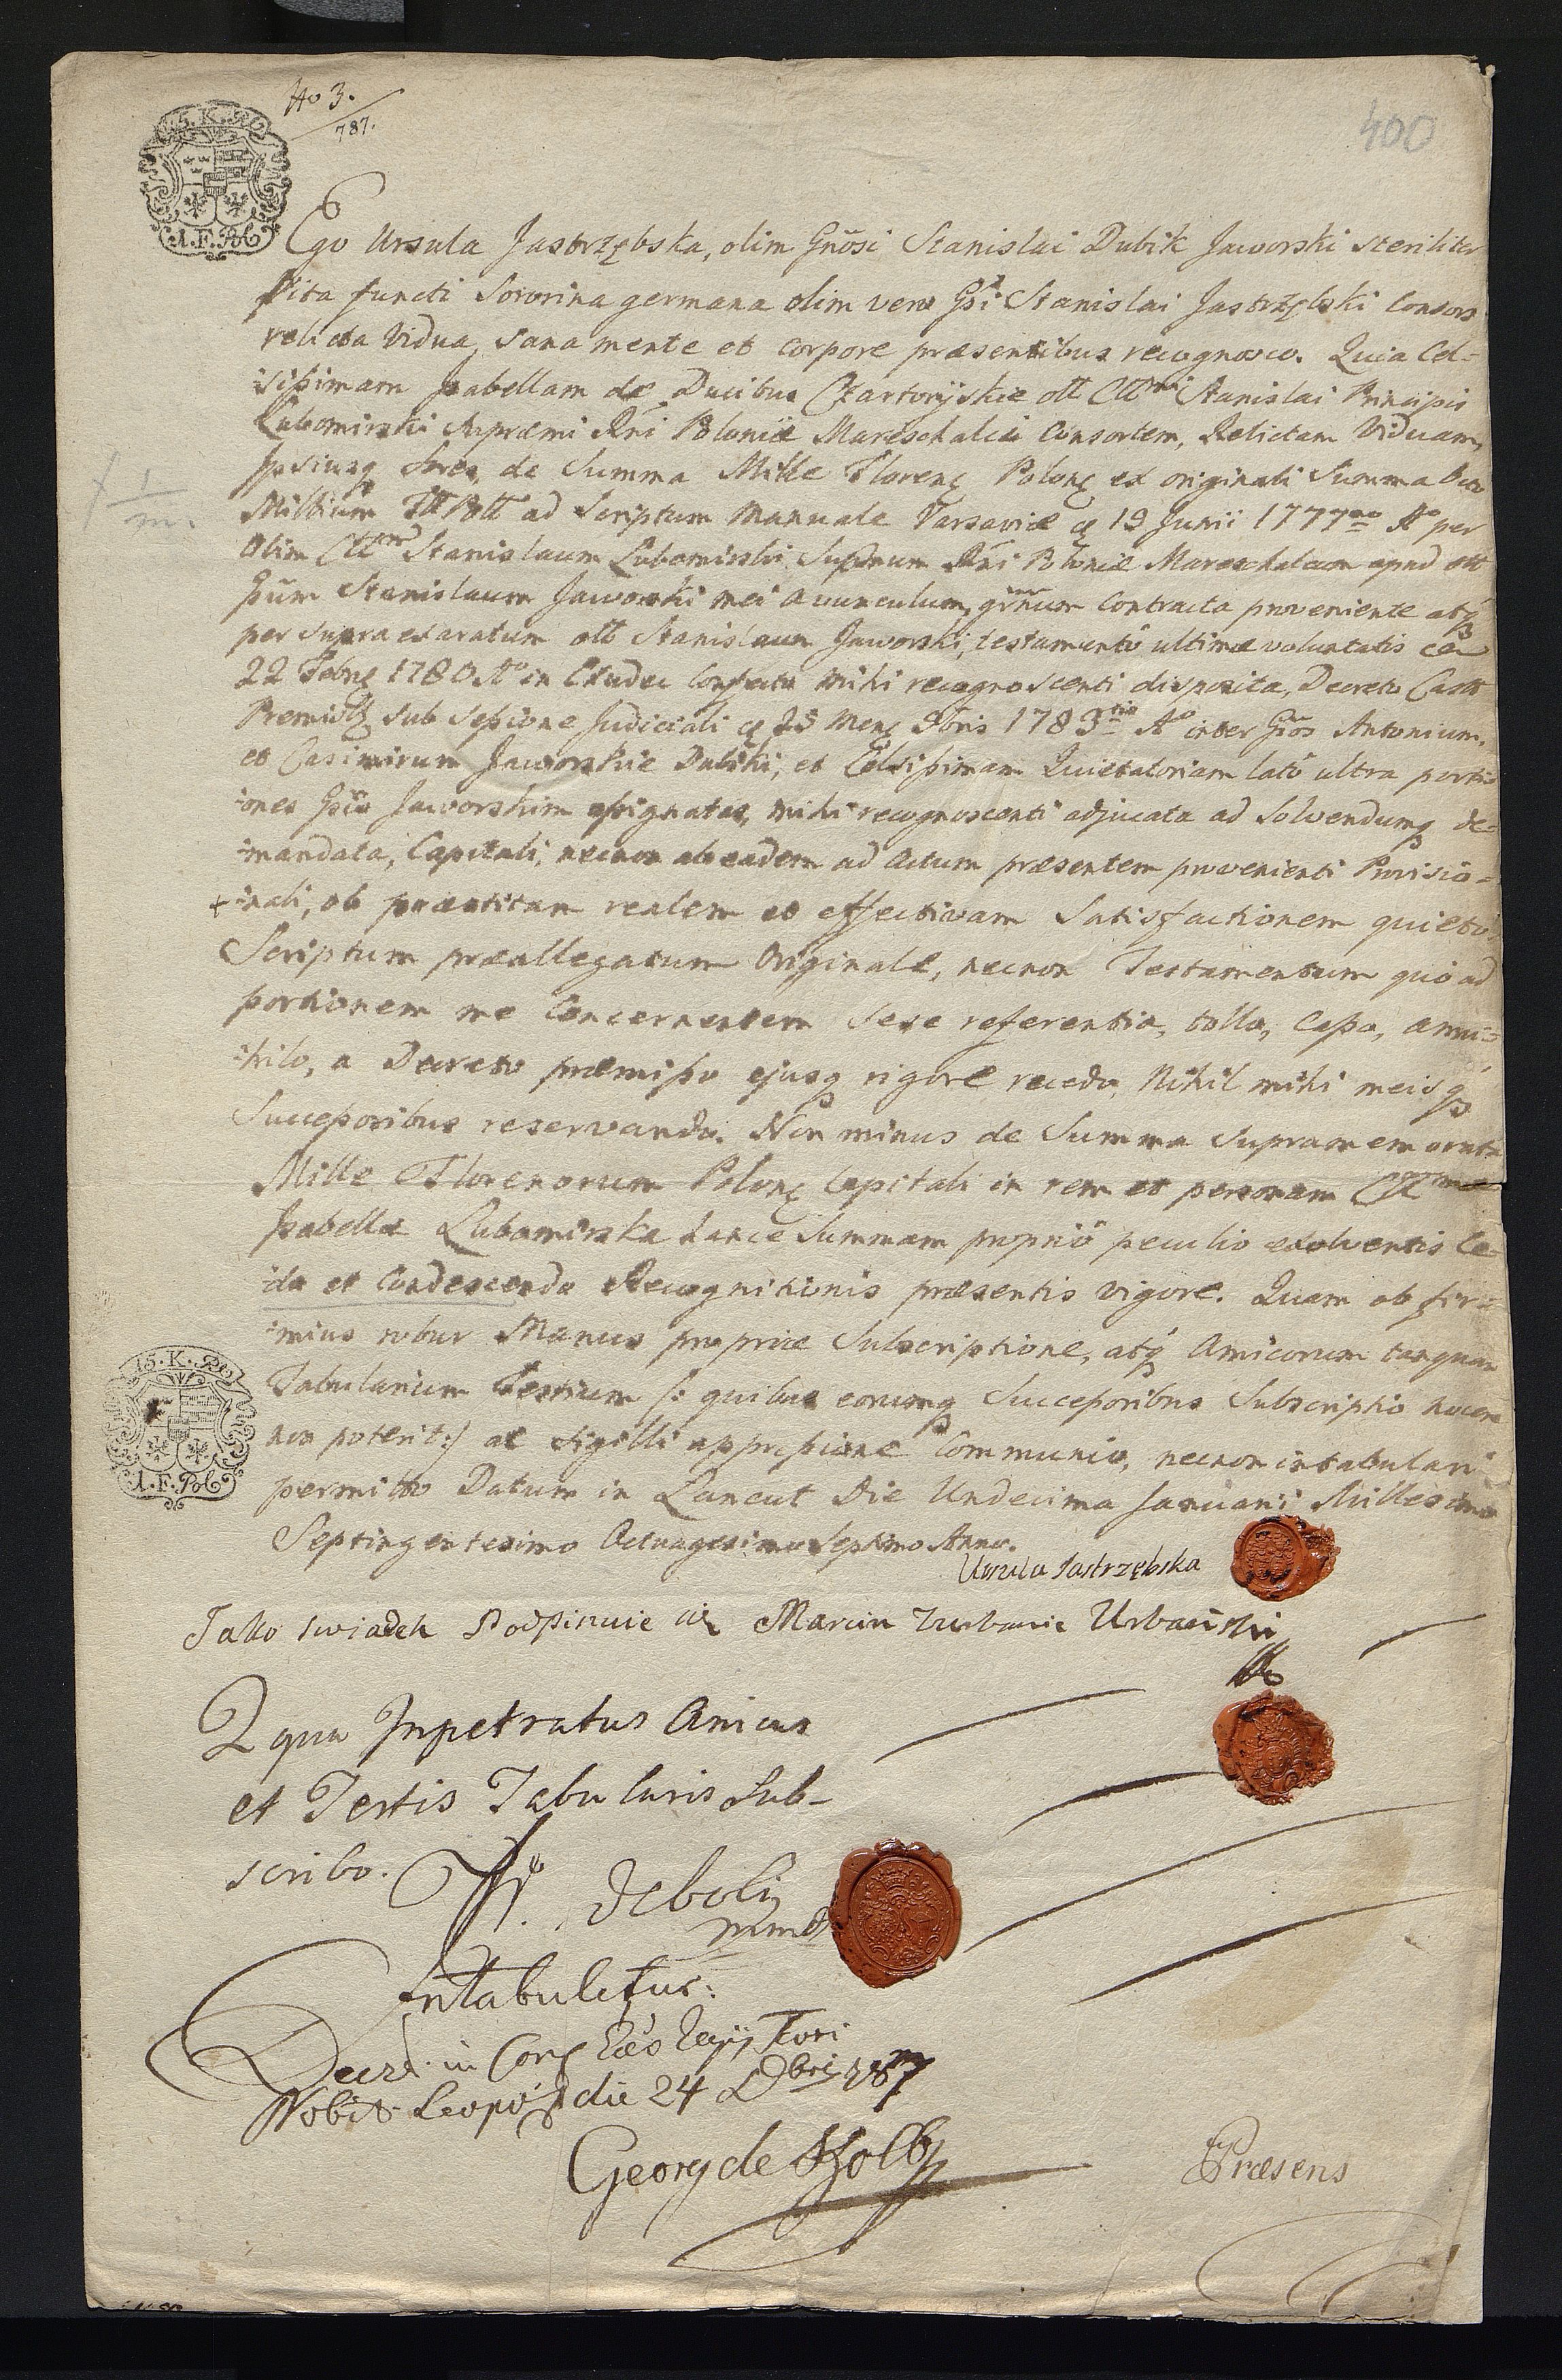 No 3.
787.
400
15. K. R.
A. F. Pol
Ego Ursula Jastrzębska, olim Gnosi Stanislai Dubik Jaworski steriliter
Vita functi Sororina germana olim vero Gsi Stanislai Jastrzębski Consors
relicta Vidua, sana mente et corpore præsentibus recognosco. Quia Cel-
sißimam Isabellam de Ducibus Czartoryskie olt Cllmi Stanislai Principis
Lubomirski Supræmi Rni Poloniæ Mareschalci Consortem, Relictam Viduam,
Ipsiusq de Summa Mille Floren Polon ex originali Summa
Millium ad Scriptum Manuale Varsaviæ 19 Junii 1777mo Ao per
Olim Stanislaum Lubomirski Supmum Rni Poloniæ Mareschalcum apud olt
Gsum Stanislaum Jaworski mei avunculum, contracta proveniente atq
per supra exaratum olt Stanislaum Jaworski, testamento ultimæ voluntatis
22 Febr 1780 Ao in confecto mihi recognoscenti disposita, Decreto Castr
Premisl sub Seßione Judiciali 1783tio Ao inter Gsos Antonium,
et Casimirum Jaworskie Dubiki, et Celsißimam Quietatoriam lato ultra porti-
ones Gsis Jaworskim aßignatas, mihi recognoscenti adjucata ad solvendumq de-
mandata, Capitali, necnon ab eadem ad actum præsentem provenienti Provisio-
+nali, ob præstitam realem et effectivam Satisfactionem quieto.
Scriptum præallegatum Originale, necnon Testamentum quo ad
portionem me Concernentem sese referentia, tollo, Caßo, anni-
hilo, a Decreto præmißo ejusq rigore recedo, Nihil mihi meisq
Succeßoribus reservando. Non minus de Summa supramemorata
Mille Florenorum Polon Capitali in rem et personam
Isabellæ Lubomirska hance Summam proprio peculio exolventis Ce-
do et Condescendo Recognitionis præsentis vigore. Quam ob fir-
mius robur Manus propriæ Subscriptione, atq Amicorum tanquam
15. K. R.
Tabularium Testium /: quibus eorumq Succeßoribus Subscriptio nocere
non poterit :/ ac sigilli appreßione Communio, necnon intabulari
A. F. Pol
permitto Datum in Lancut Die Undecima Januarii Millesimo
Septingentesimo Octuagesimo Septimo Anno.
Ursula Jastrzębska
Jako swiadek Podpisuie się Marcin Urbanski
Qqua Impetratus Amicus
et Testis Tabularis Sub-
scribo.
Deboli
mmp
Intabuletur:
Decr. in Cons Cæs Regij Fori
Nobil. Leopo die 24 Xbris 787
Georg de
Præsens